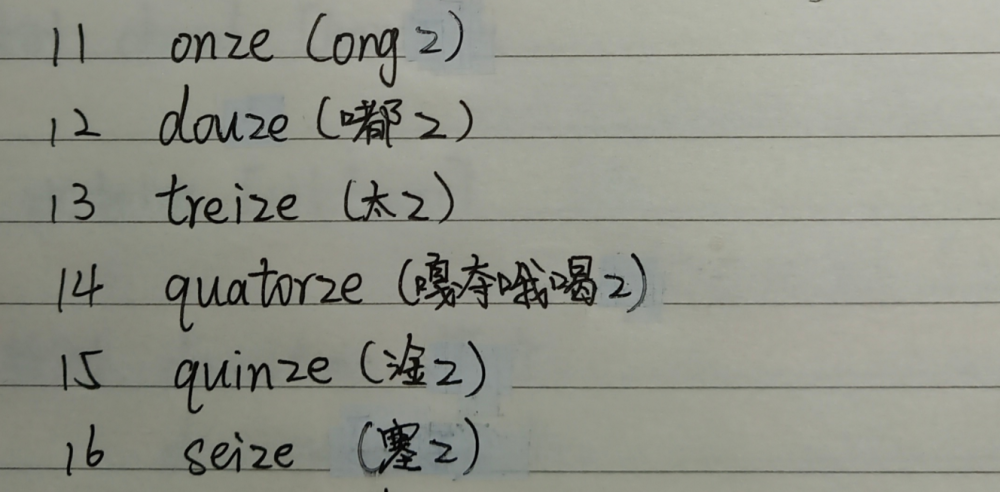 11 onze (ong z)
12 douze (嘟z)
13 treize (太z)
14 quatorze (嘎夺哦喝z)
15 quinze (淦z)
16 seize (塞z)